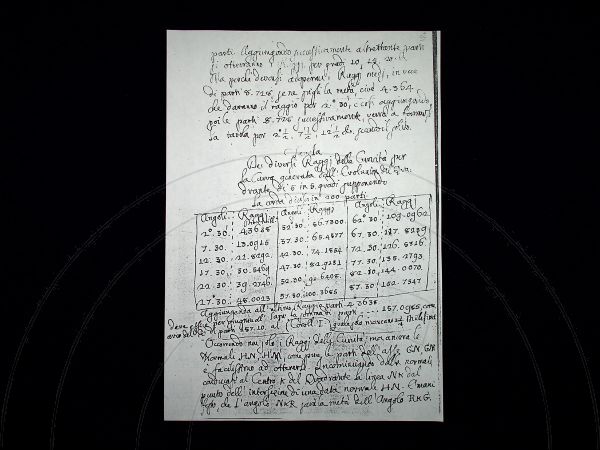 parti. Aggiungendo successivamente altrettante parti
si otterranno i per gradi 10, 15,
Ma perchè devonsi adoperare i Raggi medj, in vece
di parti 8.728 se ne pigli la metà cioè 4.364,
che daranno il raggio per 2° 30', e così aggiungendo
poi le parti 8.728 successivamente, verrà a formarsi
la tavola per 2° ½, 7 ½, 12 ½ &c. secondo il solito.
Tavola
Dei diversi Raggi della Curvità per
la Curva generata dall' Evoluzion del Qua-
drante di 5 in 5 gradi supponendo
la corda divisa in 100 parti
Angoli Raggj Angoli Raggj Angoli Raggj
2° 30. 4.3638 32. 30. 56.7300 62° 30. 109.0962
7. 30. 13.0915 37. 30. 65.4577 67. 30. 117.8239
12. 30. 21.8192 42. 30. 74.1854 72. 30. 126.5516
17. 30. 30.5469 47. 30. 82.9131 77. 30. 135.2793
22. 30. 39.2746 52. 30. 91.6408 82. 30. 144.0070
27° 30. 48.0023 57. 30. 100.3685 87. 30. 152.7347
Aggiungendo all' ultimo Raggio parti 4.3638
parti 157.0985, come
parti 157.10, al (Coroll. I) mancano 1/4 Millesime
Occorrendo non solo i Raggi della Curvità, ma ancora le
Normali HN, HM, come pure le parti dell' asse GN, GR
è facilissimo ad ottenersi. Incominciando dalle normali
conducasi al Centro K del Quadrante la linea NK dal
punto dell' intersezione di una data normale HN. È mani-
festo, che l' angolo NKR sarà la metà dell' Angolo RKG.